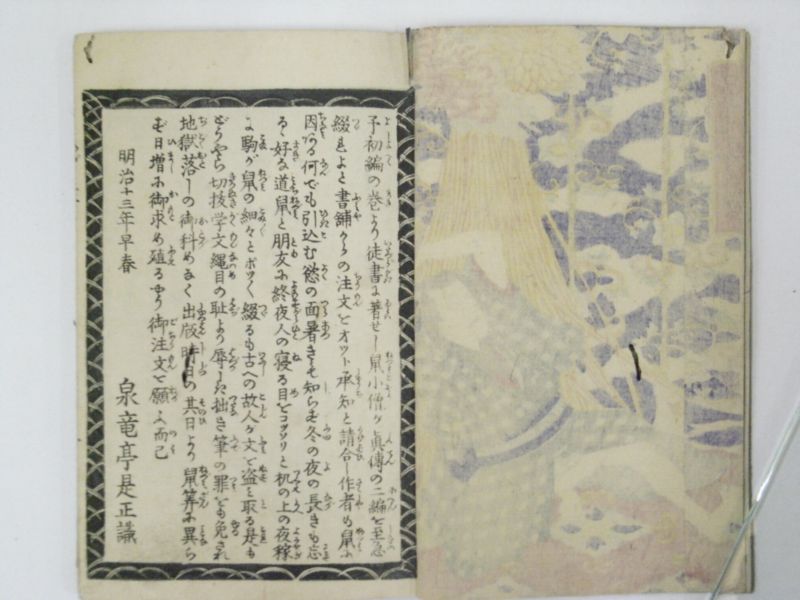 予初編の巻より徒書に著せし鼠小僧が真傳の二編を至急
綴れよと書舗からの注文をオット承知と請合し作者も鼠に
因ある何でも引込む慾の面暑さも知らも冬の夜の長きも忘
るゝ好な道鼠と朋友に終夜人の寝る目をコッソリと机の上の夜稼
に駒が鼠の細々とポツ〳〵綴るも古への故人が文を盗み取る是も
どうやら切抜学文縄目の恥より辱しき拙き筆の罪をも免され
地獄落しの御科めなく出版時日の其日より鼠算に異ら
む日増に御求め殖るやう御注文を願ふ而已
明治十三年早春
泉竜亭是正識